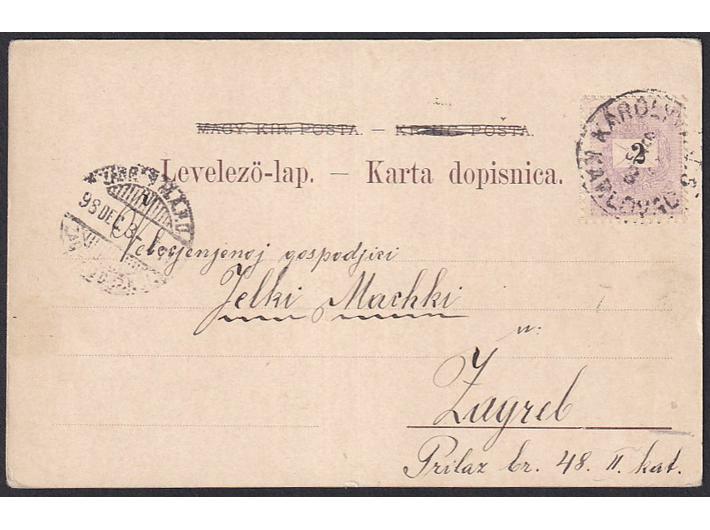 MAGY. KIR. POSTA. — KR. UG. POŠTA.
Levelező-lap. — Karta dopisnica.
2
98 DEC
Velecjenjenoj gospodjici
Jelki Machki
u:
Zagreb
Prilaz br. 48. II. kat.